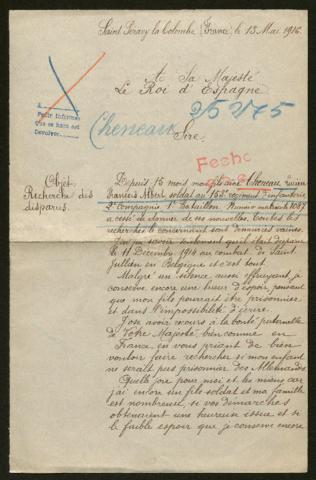 Saint Péravy la Colombe (France), le 13 Mai 1916.
A Sa Majesté
Le Roi d'Espagne
252175
A
Pedir informes
Que se hace est
Devolver
Cheneau
Sire,
Fecho
Objet
Recherche des
disparus.
Depuis 15 mois mon fils aîné Cheneau Lucien
Francis Albert soldat au 153e régiment d'infanterie
2e Compagnie 1er Bataillon Numéro matricule 1087
a cessé de donner de ses nouvelles. Toutes les
recherches le concernant sont demeurées vaines.
J'ai pu savoir seulement qu'il était disparu
le 11 Décembre 1914 au combat de Saint
Jullien en Belgique et c'est tout.
Malgré un silence aussi effrayant, je
conserve encore une lueur d'espoir, pensant
que mon fils pourrait être prisonnier
et dans l'impossibilité d'écrire.
J'ose avoir recours à la bonté paternelle
de Votre Majesté, bien connue en
France, en vous priant de bien
vouloir faire rechercher si mon enfant
ne serait pas prisonnier des Allemands.
Quelle joie pour moi et les miens car
j'ai encore un fils soldat et ma famille
est nombreuse, si vos démarches
obtenaient une heureuse issue et si
le faible espoir que je conserve encore